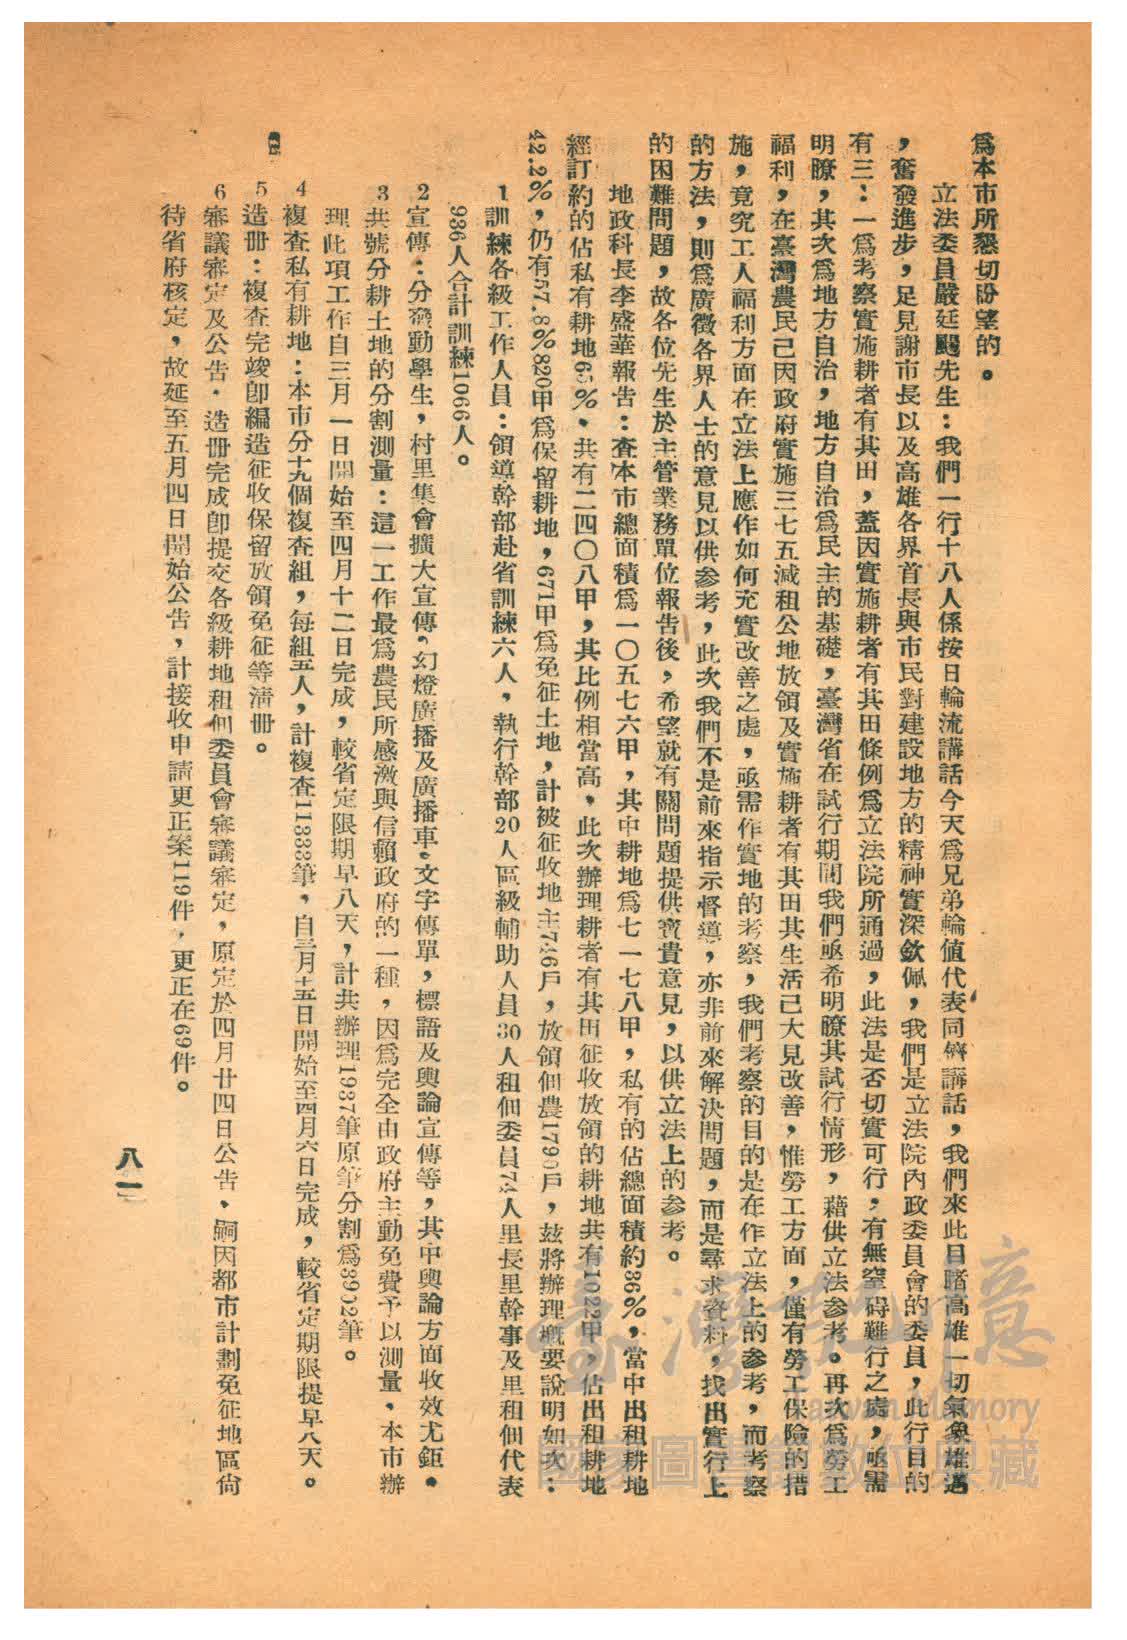 爲本市所懇切盼望的。
立法委員嚴廷颺先生：我們一行十八人係按日輪流講話今天爲兄弟輪値代表同儕講話，我們來此目睹高雄一切氣象雄邁
，奮發進步，足見謝市長以及高雄各界首長與市民對建設地方的精神實深欽佩，我們是立法院內政委員會的委員，此行目的
有三：一爲考察實施耕者有其田，蓋因實施耕者有其田條例爲立法院所通過，此法是否切實可行，有無窒碍難行之處，亟需
明瞭，其次爲地方自治，地方自治爲民主的基礎，臺灣省在試行期間我們亟希明瞭其試行情形，藉供立法參考。再次爲勞工
福利，在臺灣農民已因政府實施三七五減租公地放領及實施耕者有其田其生活已大見改善，惟勞工方面，僅有勞工保險的措
施，竟究工人福利方面在立法上應作如何充實改善之處，亟需作實地的考察，我們考察的目的是在作立法上的參考，而考察
的方法，則爲廣徵各界人士的意見以供參考，此次我們不是前來指示督導，亦非前來解決問題，而是尋求資料，找出實行上
的困難問題，故各位先生於主管業務單位報告後，希望就有關問題提供寶貴意見，以供立法上的參考。
地政科長李盛華報告：査本市總面積爲一〇五七六甲，其中耕地爲七一七八甲，私有的佔總面積約36%，當中出租耕地
經訂約的佔私有耕地6%．共有二四〇八甲，其比例相當高，此次辦理耕者有其田征收放領的耕地共有1022甲，佔出租耕地
42.2%，仍有57.8%820甲爲保留耕地，671甲爲免征土地，計被征收地主746戶，放領佃農1790戶，玆將辦理槪要說明如次：
1訓練各級工作人員：領導幹部赴省訓練六人，執行幹部20人區級輔助人員30人租佃委員74人里長里幹事及里租佃代表
936人合計訓練1066人。
2宣傳：分發動學生，村里集會擴大宣傳，幻燈廣播及廣播車。文字傳單，標語及輿論宣傳等，其中輿論方面收效尤鉅。
3共號分耕土地的分割測量：這一工作最爲農民所感激與信賴政府的一種，因爲完全由政府主動免費予以測量，本市辦
理此項工作自三月一日開始至四月十二日完成，較省定限期早八天，計共辦理1937筆原筆分割爲3902筆。
4複査私有耕地：本市分十九個複査組，每組五人，計複査11333筆，自三月十五日開始至四月六日完成，較省定期限提早八天。
5造册：複査完竣卽編造征收保留放領免征等淸册。
6審議審定及公告．造册完成卽提交各級耕地租佃委員會審議審定，原定於四月廿四日公告，嗣因都市計劃免征地區尙
待省府核定，故延至五月四日開始公告，計接收申請更正案119件，更正在69件。
八一
臺灣記憶
Taiwan Memory
國家圖書館數位典藏